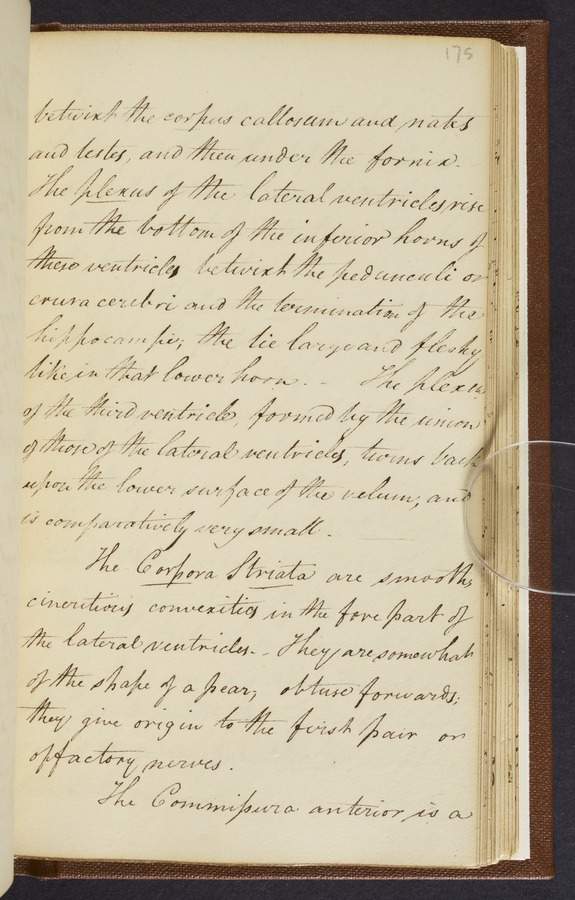 175
betwixt the corpus callosum and nates
and testes, and then under the fornix.
The plexus of the lateral ventricles, rise
from the bottom of the inferior horns of
these ventricles betwixt the pedunculi or
crura cerebri and the termination of the
hippocampi; the lie large and fleshy
like in that lower horn. - The plexus
of the third ventricle, formed by the union
of those of the lateral ventricles, turns back
upon the lower surface of the velum, and
is comparatively very small.
The Corpora Striata are smooth,
cineritious convexities in the fore part of
the lateral ventricles. - They are somewhat
of the shape of a pear; obtuse forwards;
they give origin to the first pair or
opfactory nerves.
The Commissura anterior is a